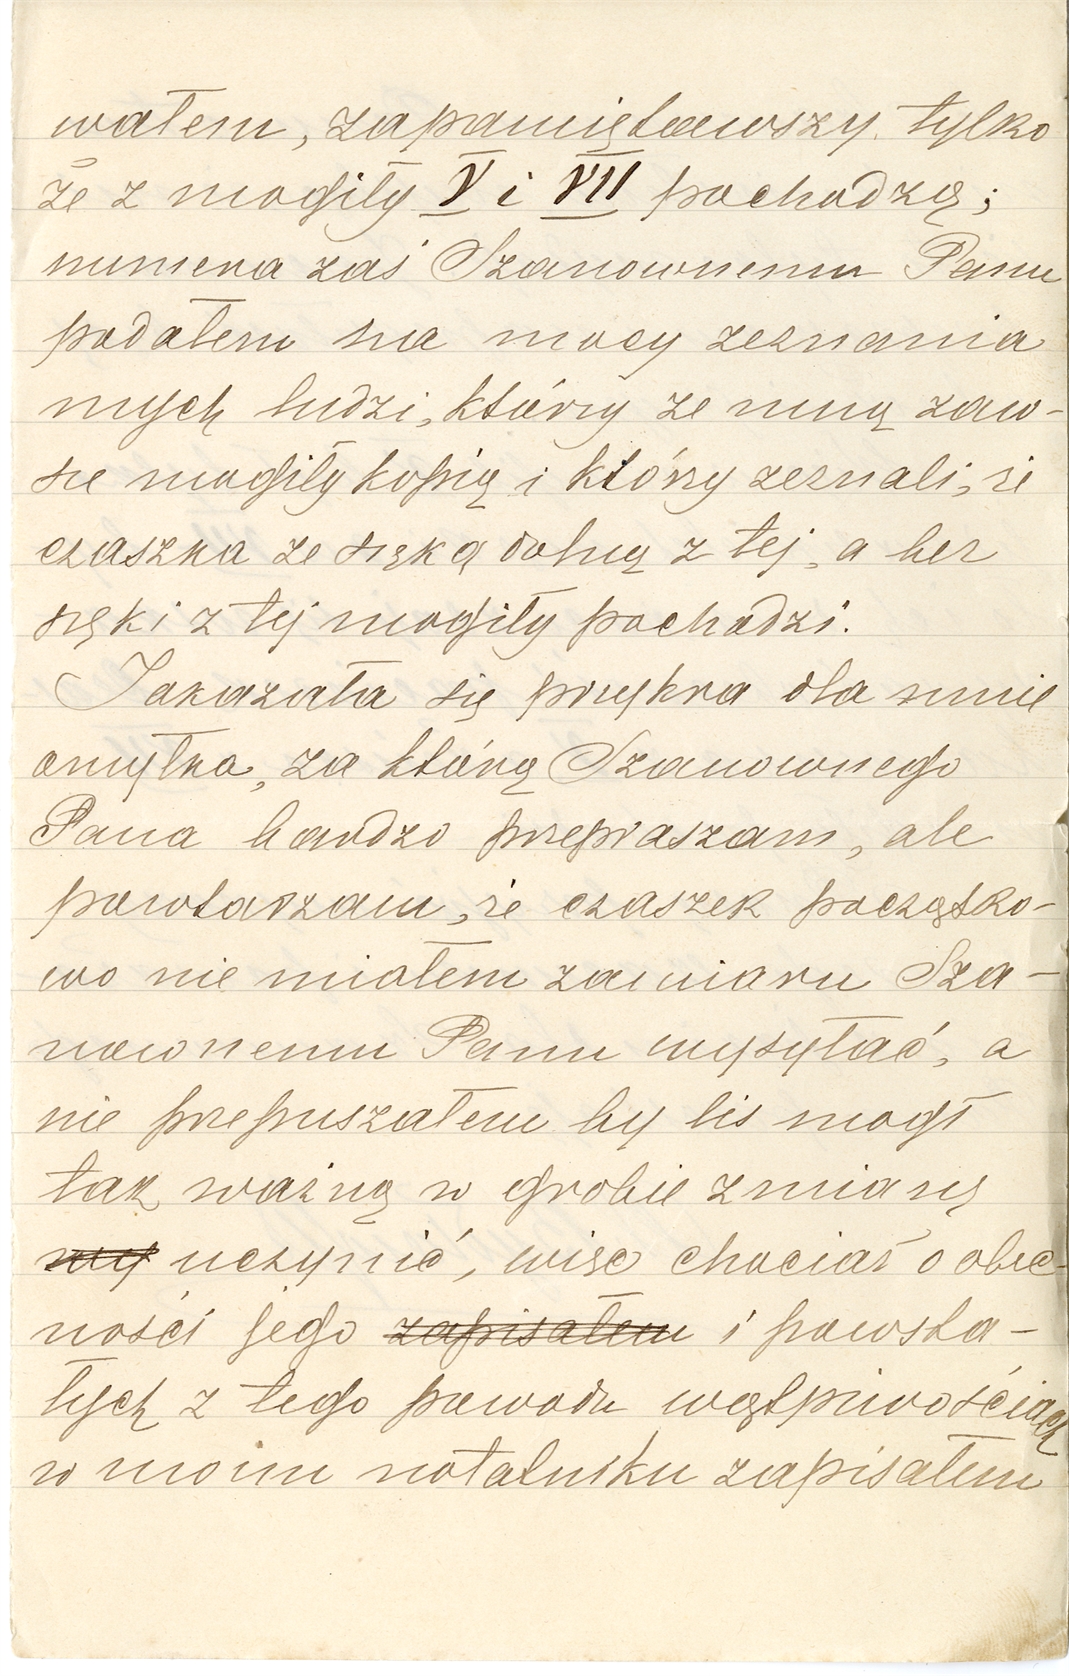 wałem, zapamiętawszy tylko
że z mogiły V i VII pochodzą;
numera zaś Szanownemu Panu
podałem na mocy zeznania
mych ludzi, którzy ze mną zaw-
sze mogiły kopią i którzy zeznali, że
czaszka ze szczęką dolną z tej, a bez
szczęki z tej mogiły pochodzi.
Zakazała się przykra dla mnie
omyłka, za którą Szanownego
Pana bardzo przepraszam, ale
powtarzam, że czaszek początko-
wo nie miałem zamiaru Sza-
nownemu Panu wysyłać, a
nie przepuszałem by lis mógł
tak ważną w grobie zmianę
wy uczynić, więc chociaż o obec-
ności jego zapisałem i powsta-
łych z tego powodu wątpliwościach
w moim notatniku zapisałem